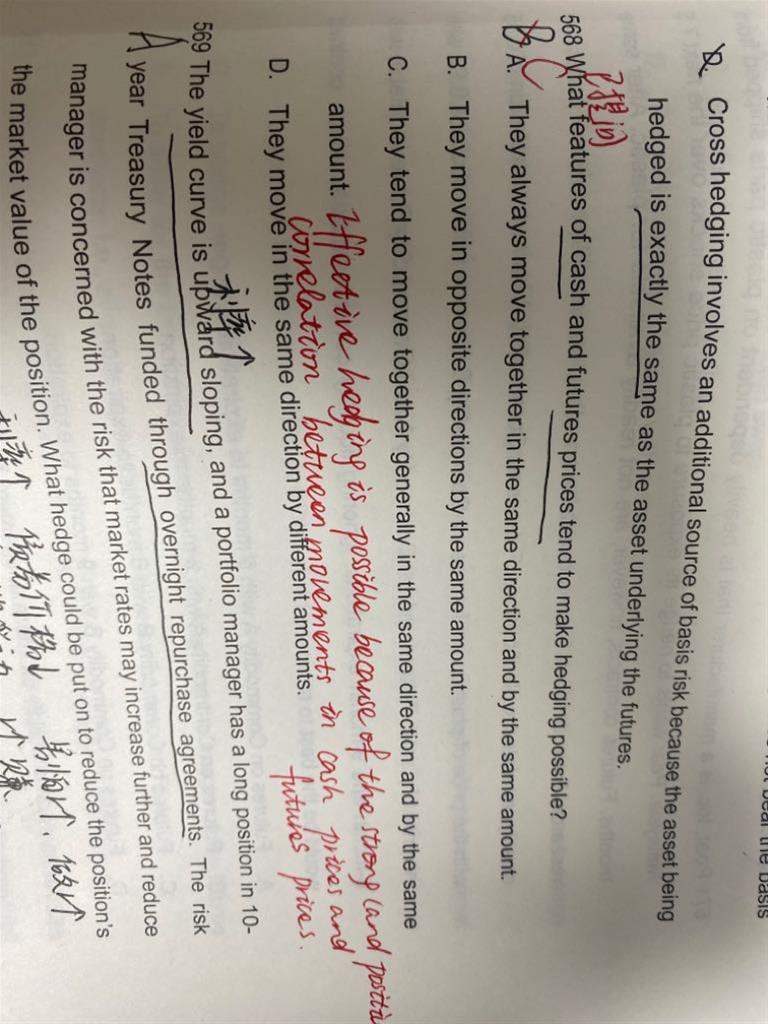 not bear the basis
D. Cross hedging involves an additional source of basis risk because the asset being
hedged is exactly the same as the asset underlying the futures.
568 What features of cash and futures prices tend to make hedging possible?
B C A. They always move together in the same direction and by the same amount.
B. They move in opposite directions by the same amount.
C. They tend to move together generally in the same direction and by the same
amount. Effective hedging is possible because of the strong (and positi
correlation between movements in cash prices and
futures prices.
D. They move in the same direction by different amounts.
利率↑
569 The yield curve is upward sloping, and a portfolio manager has a long position in 10-
A year Treasury Notes funded through overnight repurchase agreements. The risk
manager is concerned with the risk that market rates may increase further and reduce
the market value of the position. What hedge could be put on to reduce the position's
利率↑ 债券价格↓